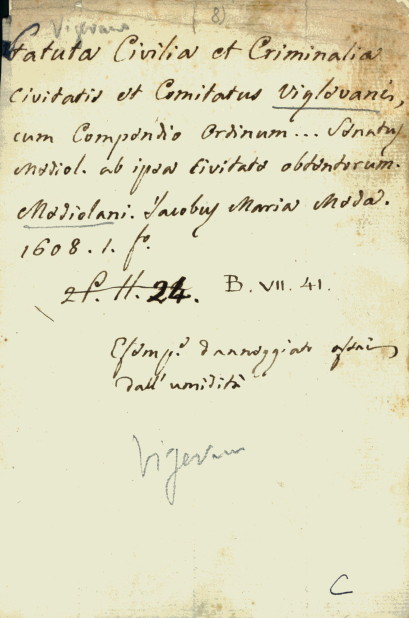 Vigevano (8)
Statuta Civilia et Criminalia
Civitatis et Comitatus Viglevani,
cum Compendio Ordinum... Senatus
Mediol. ab ipsa Civitate obtentorum.
Mediolani. Jacobus Maria Meda.
1608. 1. fo.
2P. H. 24. B. VII. 41.
Esempo. danneggiato assai
dall'umidità
Vigevano
C